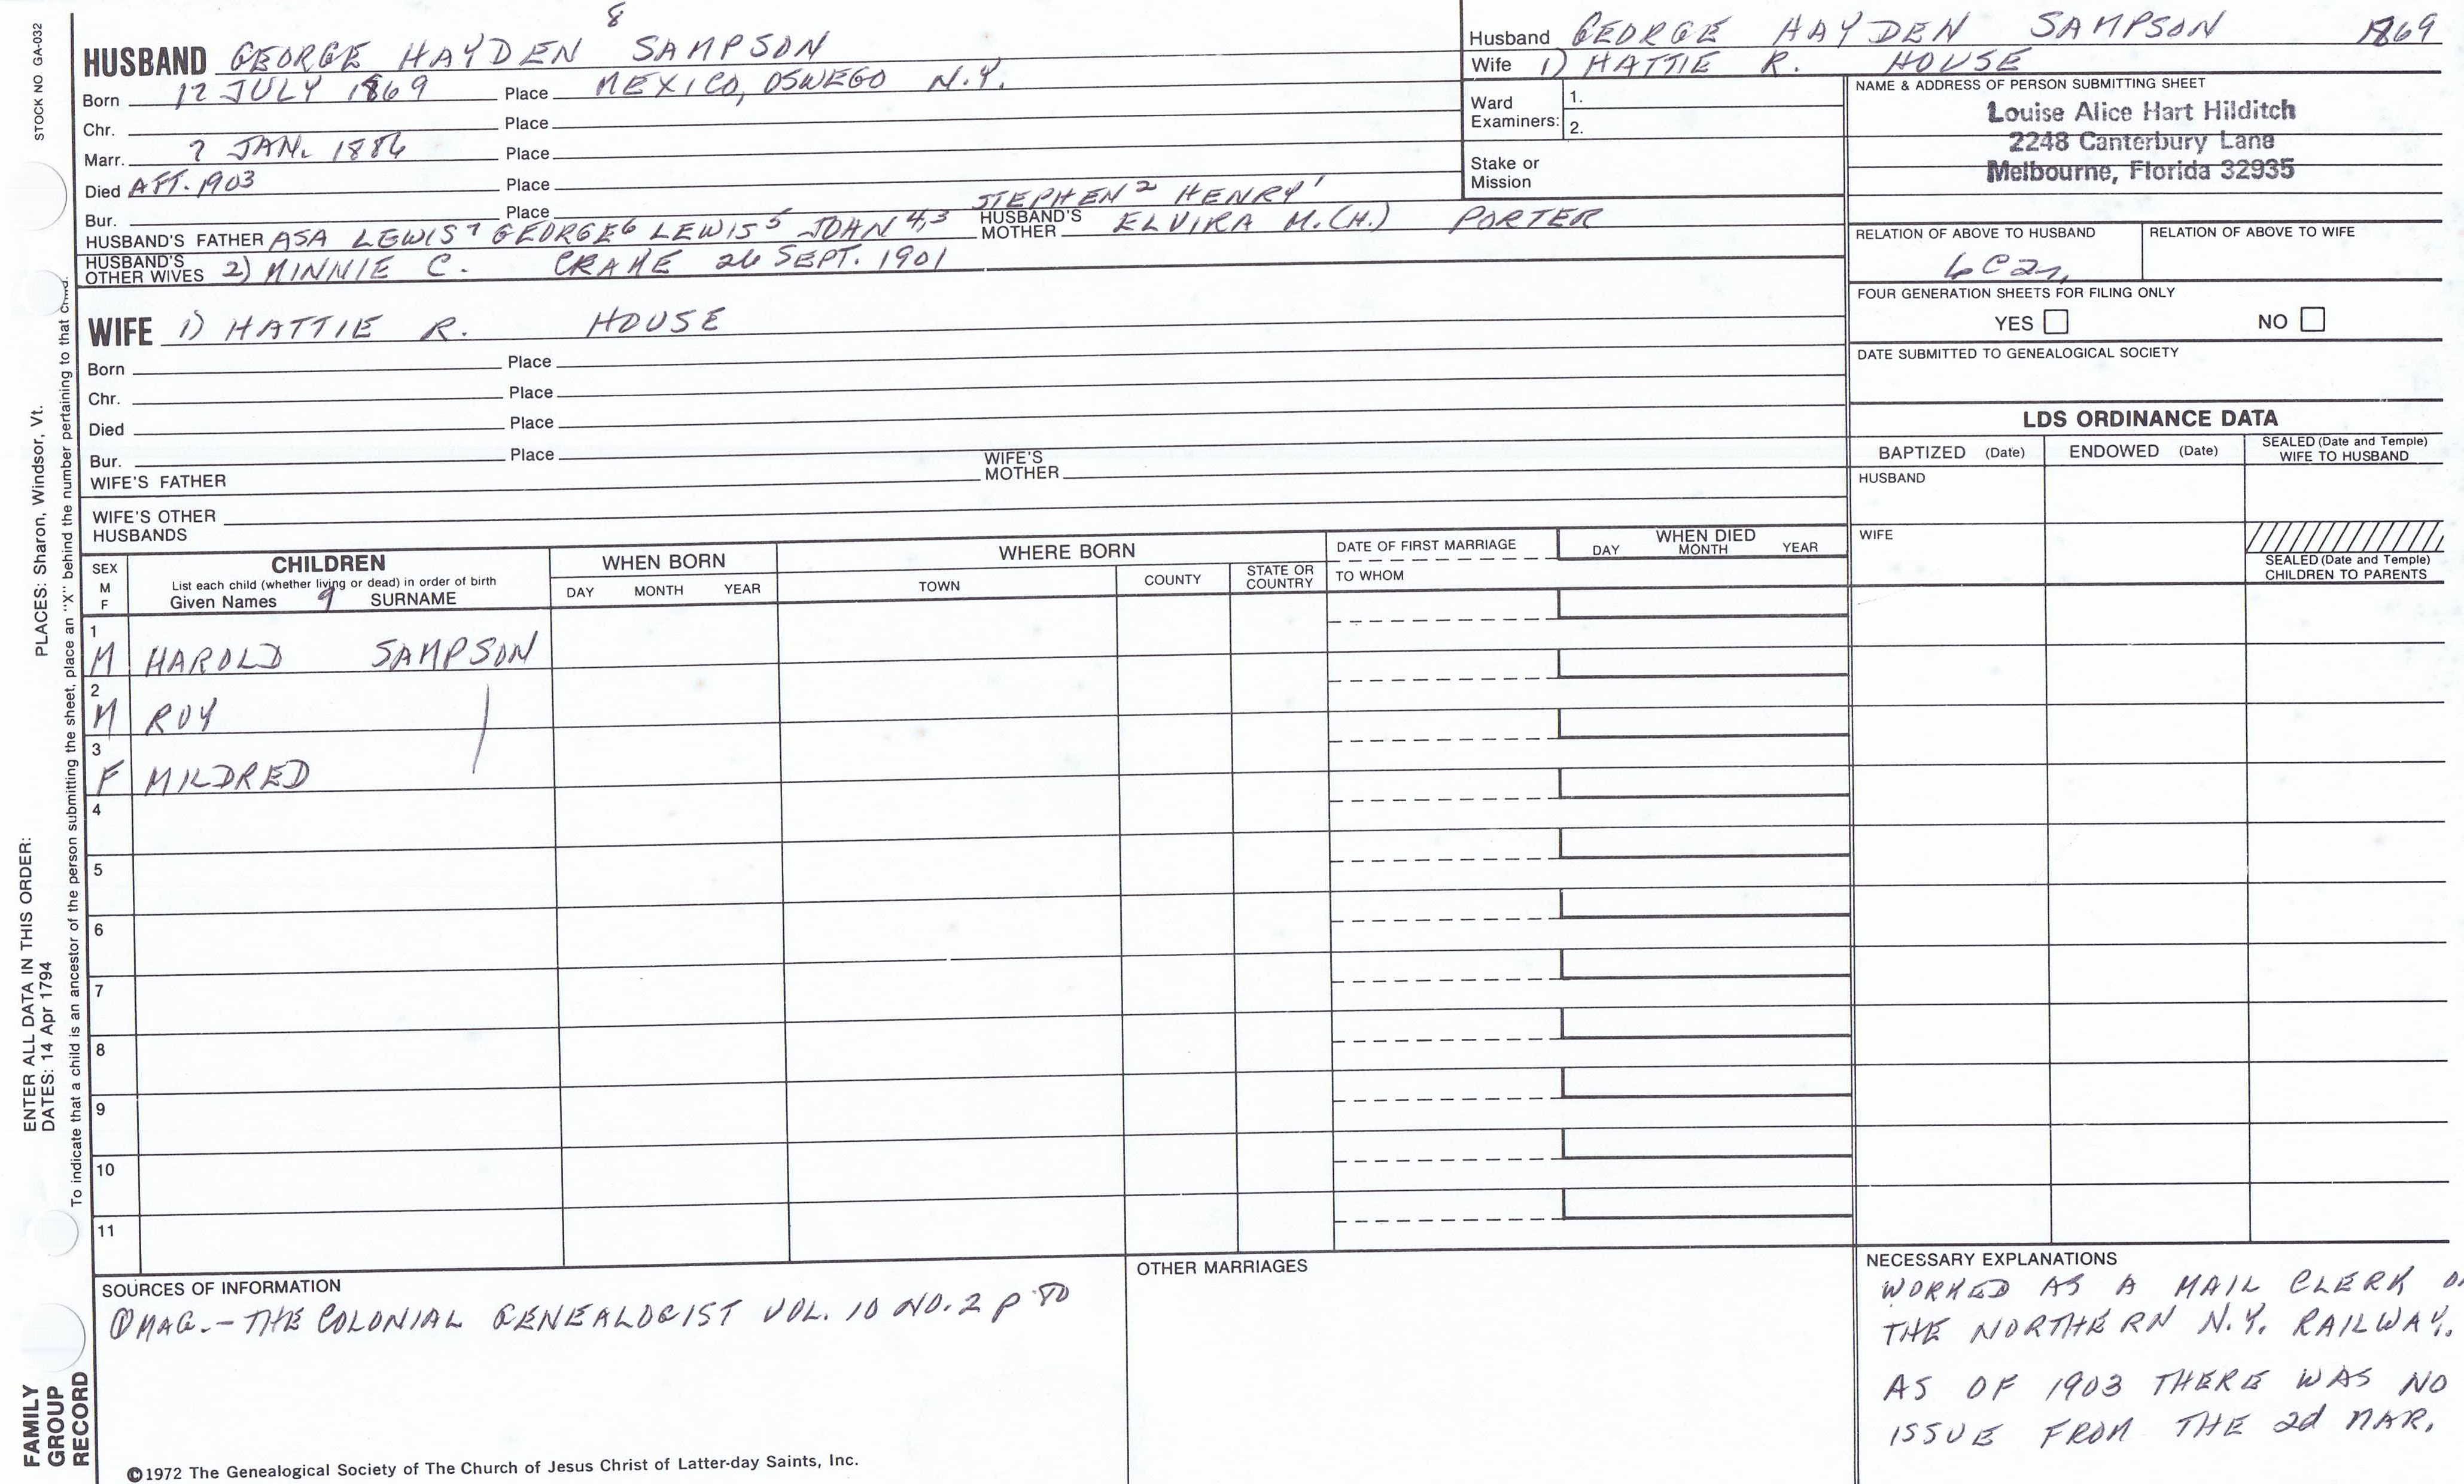 STOCK NO GA-032
PLACES: Sharon, Windsor, Vt.
ENTER ALL DATA IN THIS ORDER:
DATES: 14 Apr 1794
To indicate that a child is an ancestor of the person submitting the sheet, place an "X" behind the number pertaining to that child.
FAMILY
GROUP
RECORD
8
HUSBAND GEORGE HAYDEN SAMPSON
Born 12 JULY 1869 Place MEXICO, OSWEGO N.Y.
Chr. Place
Marr. ? JAN. 1886 Place
Died AFT. 1903 Place
Bur. Place
STEPHEN 2 HENRY 1
HUSBAND'S FATHER ASA LEWIS 7 GEORGE 6 LEWIS 5 JOHN 4,3 HUSBAND'S MOTHER ELVIRA M.(H.) PORTER
HUSBAND'S OTHER WIVES 2) MINNIE C. CRANE 26 SEPT. 1901
WIFE 1) HATTIE R. HOUSE
Born Place
Chr. Place
Died Place
Bur. Place
WIFE'S FATHER WIFE'S MOTHER
WIFE'S OTHER HUSBANDS
Husband GEORGE HAYDEN SAMPSON 1869
Wife 1) HATTIE R. HOUSE
Ward Examiners: 1.
2.
Stake or Mission
NAME & ADDRESS OF PERSON SUBMITTING SHEET
Louise Alice Hart Hilditch
2248 Canterbury Lane
Melbourne, Florida 32935
RELATION OF ABOVE TO HUSBAND RELATION OF ABOVE TO WIFE
6C2r.
FOUR GENERATION SHEETS FOR FILING ONLY
YES NO
DATE SUBMITTED TO GENEALOGICAL SOCIETY
LDS ORDINANCE DATA
BAPTIZED (Date) ENDOWED (Date) SEALED (Date and Temple) WIFE TO HUSBAND
HUSBAND
WIFE
SEALED (Date and Temple) CHILDREN TO PARENTS
SEX M F
CHILDREN
List each child (whether living or dead) in order of birth
Given Names 9 SURNAME
WHEN BORN
DAY MONTH YEAR
WHERE BORN
TOWN COUNTY STATE OR COUNTRY
DATE OF FIRST MARRIAGE
TO WHOM
WHEN DIED
DAY MONTH YEAR
1
M HAROLD SAMPSON
2
M ROY
3
F MILDRED
4
5
6
7
8
9
10
11
SOURCES OF INFORMATION
① MAG. - THE COLONIAL GENEALOGIST VOL. 10 NO. 2 P 80
OTHER MARRIAGES
NECESSARY EXPLANATIONS
WORKED AS A MAIL CLERK
THE NORTHERN N.Y. RAILWAY.
AS OF 1903 THERE WAS NO
ISSUE FROM THE 2d MAR.
©1972 The Genealogical Society of The Church of Jesus Christ of Latter-day Saints, Inc.